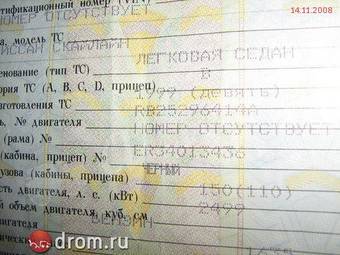 14.11.2008
тификационный номер (VIN)
НОМЕР ОТСУТСТВУЕТ
а, модель ТС
ИССАН СКАЙЛАЙН
ЛЕГКОВАЯ СЕДАН
енование (тип ТС)
B
ория ТС (A, B, C, D, прицеп)
1999 (ДЕВЯТЬ)
зготовления ТС
RB25296414A
ь, № двигателя
НОМЕР ОТСУТСТВУЕТ
(рама) №
ER34013436
(кабина, прицеп) №
ЧЕРНЫЙ
узова (кабины, прицепа)
150(110)
сть двигателя, л. с. (кВт)
2499
й объем двигателя, куб. см
БЕНЗИН
двигателя
drom.ru